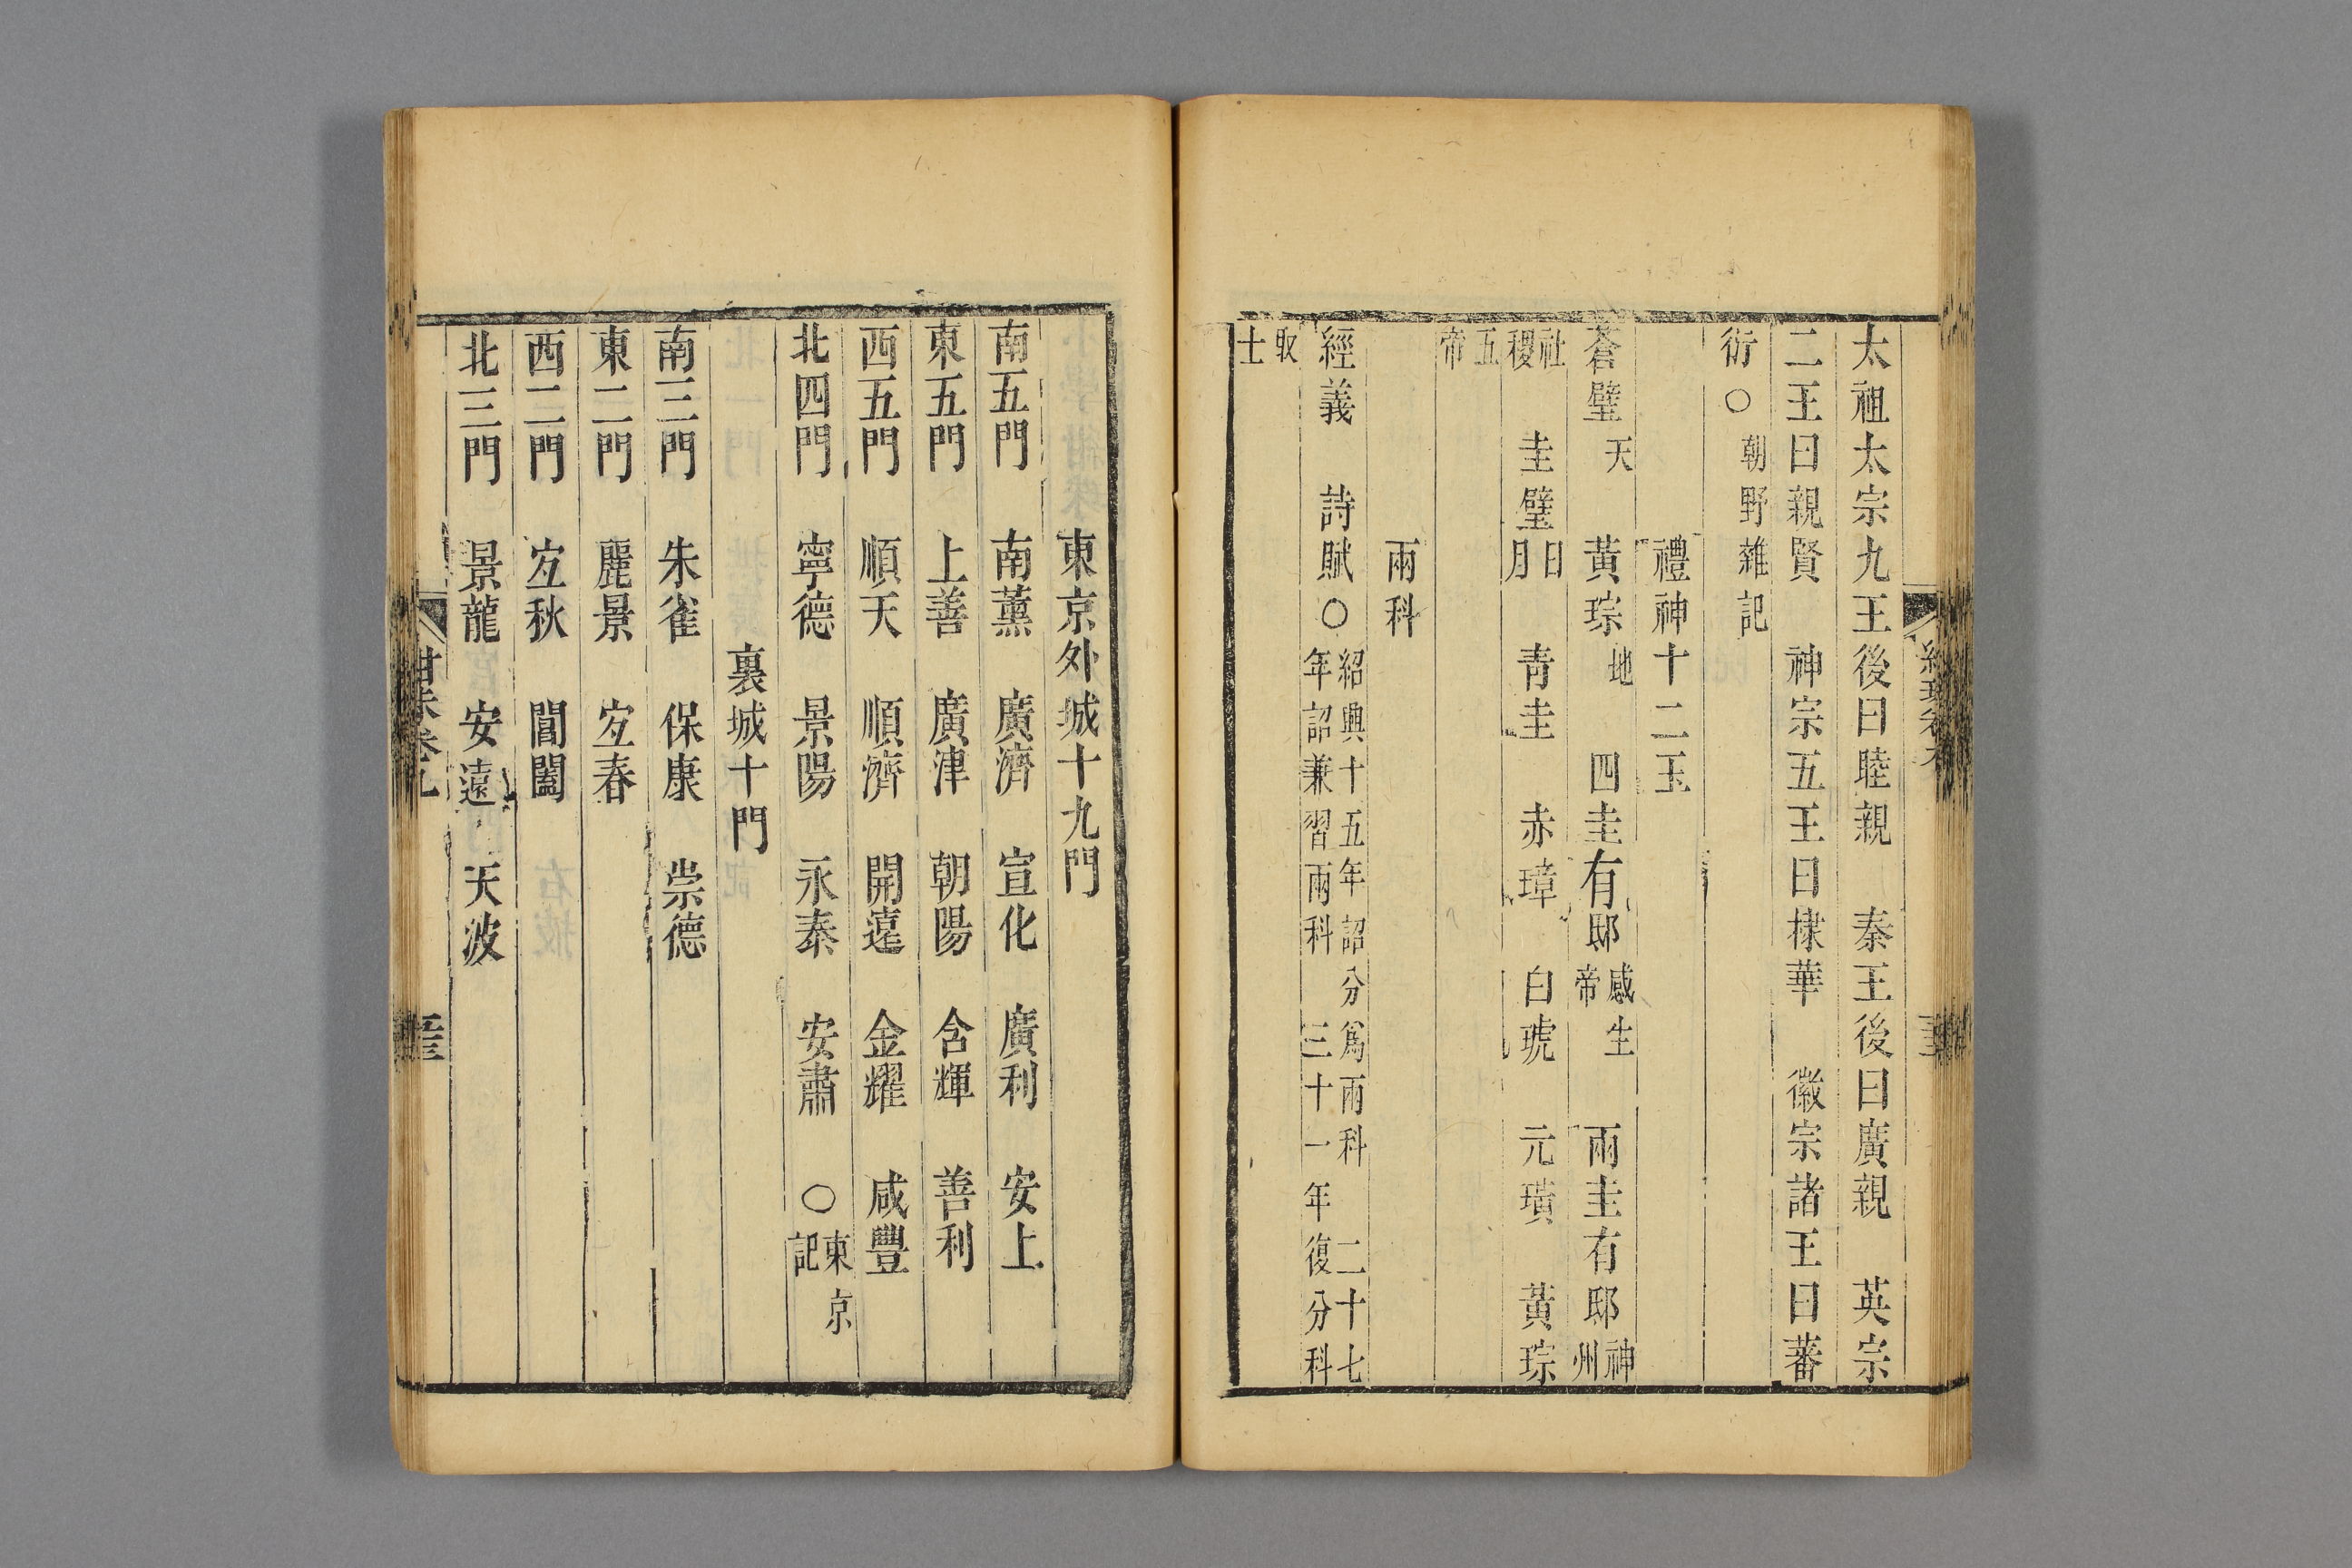 太祖太宗九王後曰睦親　秦王後曰廣親　英宗
二王曰親賢　神宗五王曰棣華　徽宗諸王曰蕃
衍○朝野雜記
禮神十二玉
蒼璧天　黃琮地　四圭有邸感生帝　兩圭有邸神州
社稷　圭璧日月　青圭　赤璋　白琥　元璜　黃琮
五帝
兩科
經義　詩賦○紹興十五年詔分爲兩科　二十七年詔兼習兩科　三十一年復分科
取士
東京外城十九門
南五門　南薰　廣濟　宣化　廣利　安上
東五門　上善　廣津　朝陽　含輝　善利
西五門　順天　順濟　開遠　金耀　咸豐
北四門　寧德　景陽　永泰　安肅　○東京記
裏城十門
南三門　朱雀　保康　崇德
東二門　麗景　宐春
西二門　宐秋　閶闔
北三門　景龍　安遠　天波